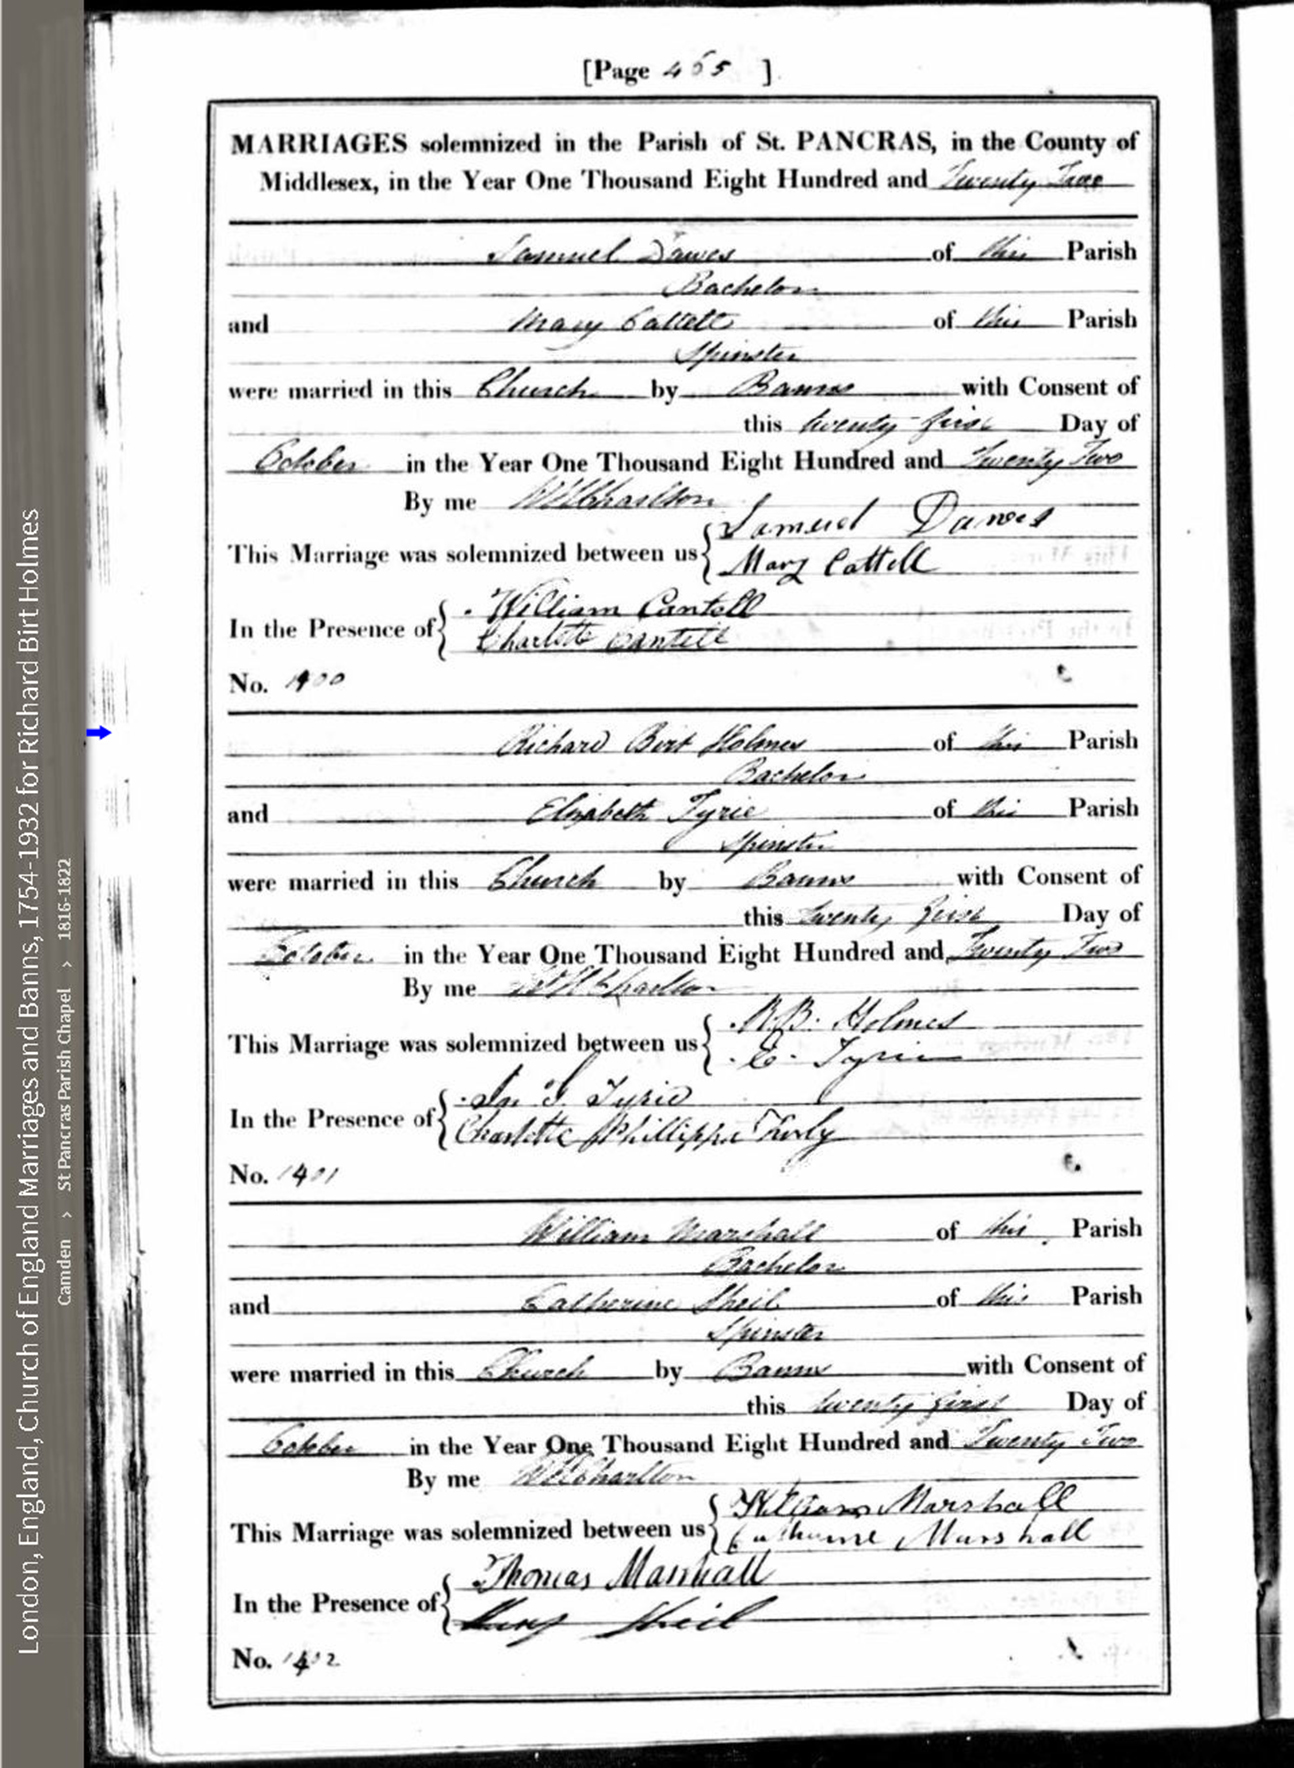 [Page 465 ]
MARRIAGES solemnized in the Parish of St. PANCRAS, in the County of
Middlesex, in the Year One Thousand Eight Hundred and Twenty Two
Samuel Dawes of this Parish
Bachelor
and Mary Cattell of this Parish
Spinster
were married in this Church by Banns with Consent of
this twenty first Day of
October in the Year One Thousand Eight Hundred and Twenty Two
By me W Charlton
Samuel Dawes
This Marriage was solemnized between us
Mary Cattell
William Cantell
In the Presence of
Charlotte Cantell
No. 1400
Richard Birt Holmes of this Parish
Bachelor
and Elizabeth Tyrie of this Parish
Spinster
were married in this Church by Banns with Consent of
this twenty first Day of
October in the Year One Thousand Eight Hundred and Twenty Two
By me Charlton
R.B. Holmes
This Marriage was solemnized between us
E. Tyrie
Tyrie
In the Presence of
Charlotte Phillippa
No. 1401
William Marshall of this Parish
Bachelor
and Catherine Sheil of this Parish
Spinster
were married in this Church by Banns with Consent of
this twenty first Day of
October in the Year One Thousand Eight Hundred and Twenty Two
By me Charlton
William Marshall
This Marriage was solemnized between us
Catherine Marshall
Thomas Marshall
In the Presence of
Mary Sheil
No. 1402
London, England, Church of England Marriages and Banns, 1754-1932 for Richard Birt Holmes
Camden > St Pancras Parish Chapel > 1816-1822